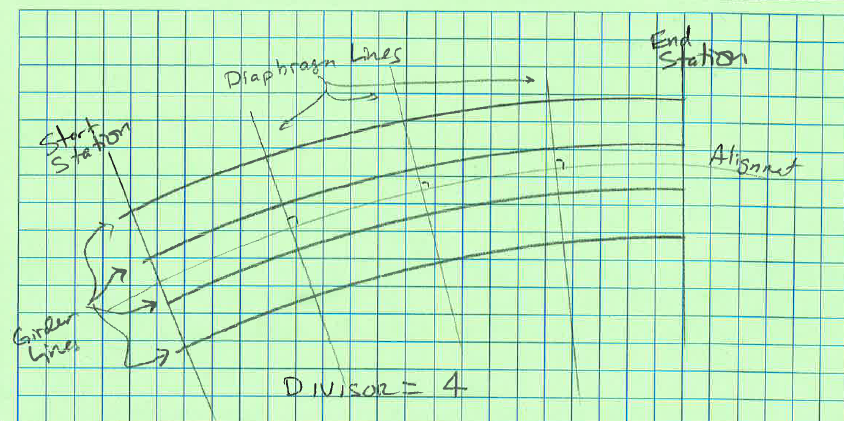 End
Station
Diaphragm Lines
Start
Station
Alignmet
Girder
Lines
DIVISOR = 4